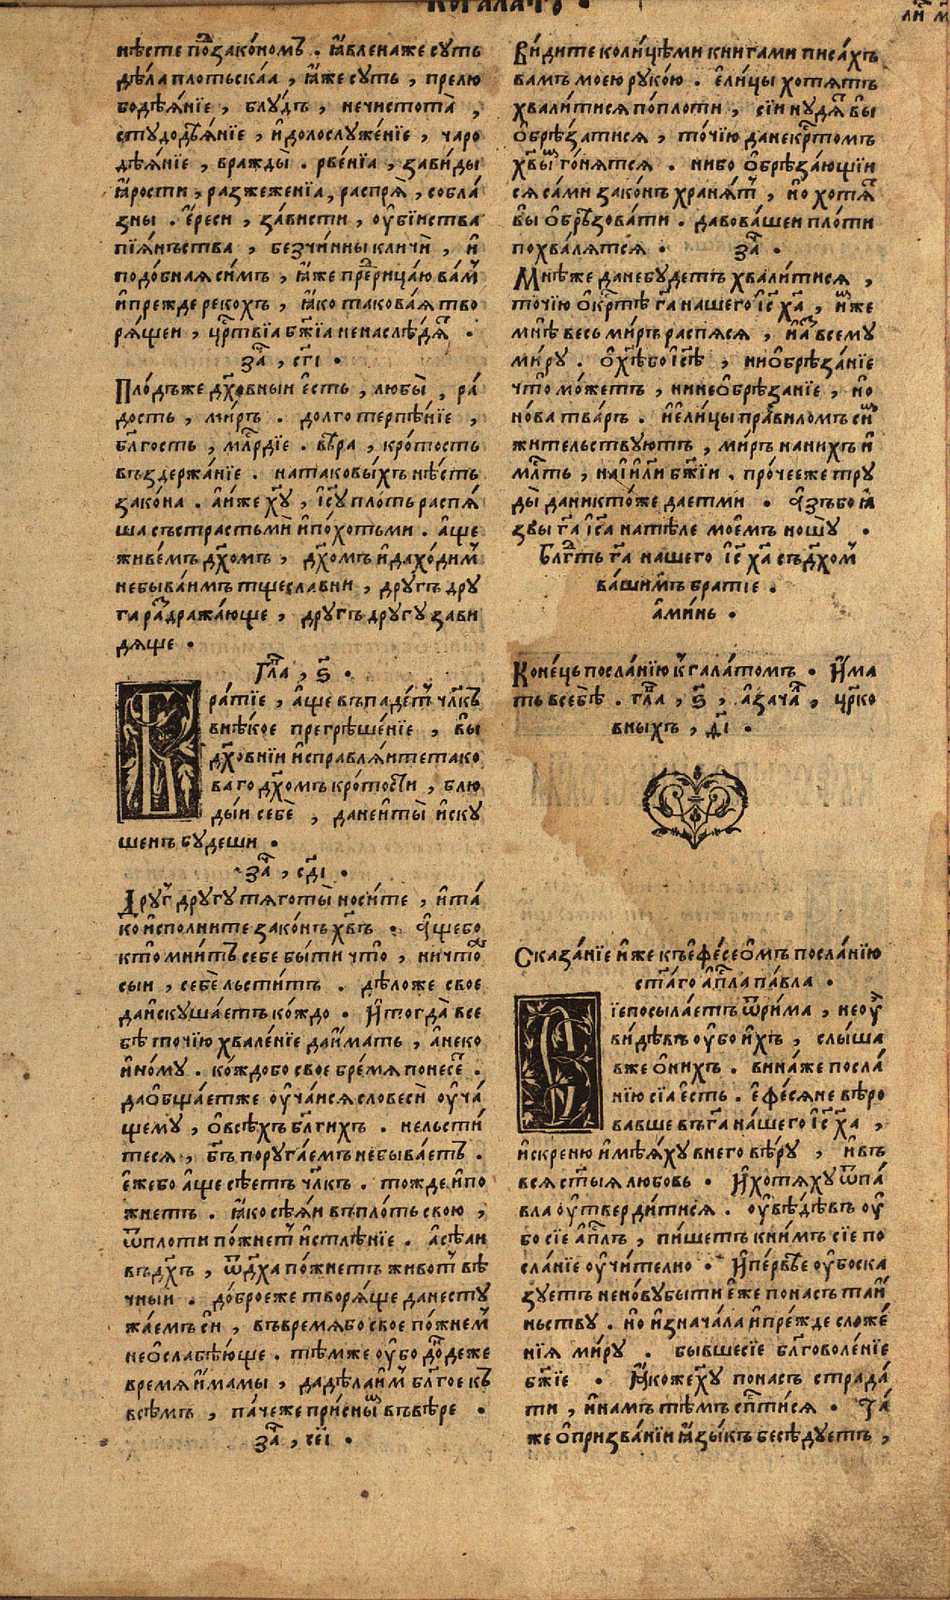 нѣсте под̾закономъ . ꙗвленаже суть
дѣла плотьскаа , ꙗже суть , прелю
бодѣꙗніе , блудъ , нечистота ,
студодѣꙗніе , идолослуженіе , чаро
дѣꙗніе , вражды . рвеніа , завиды
ꙗрости , разжеженїа , распрѧ , собла
зны . ереси , зависти , оубїиства
пїꙗнъства , безчинны кличи , и
подобнаꙗ симъ , ꙗже прⷣерицаю вамⸯ
ипрежде рекохъ , ꙗко таковаꙗ тво
рѧщеи , црⷭтвїа бж҃їа ненаслѣдѧⷮ .
заⷱ , сг҃і .
Плодъже дх҃овныи есть , любы , ра
дость , миръ . долго терпѣніе ,
бл҃гость , млⷭрдїе . вѣра , кротость
въздержаніе . натаковыхъ нѣсть
закона . аиже хв҃у , іс҃у плоть распѧ
ша съ страстьми ипохотьми . аще
живемъ дх҃омъ , дх҃омъ идаходимⸯ
небываимъ тщеславни , другъ дру
га раⷥдражающе , другъ другу зави
дѧще .
Глⷡа , ѕ҃ .
Братіе , аще въпадетⸯ чл҃къ
внѣкое прегрѣшеніе , вы
дх҃овніи исправлѧитетако
ваго дх҃омъ кротости , блю
дыи себе , данеиты иску
шенъ будеши .
заⷱ , сд҃і .
Другⸯ другу тѧготы носите , ита
ко исполните законъ хв҃ъ . Ащебо
кто мнитъ себе быти что , ничтоⷤ
сыи , себе льститъ . дѣложе свое
даискушаетъ кождо . Итогда все
бѣ точїю хваленїе даимать , анеко
иному . кождобо свое бремѧ понесеⷮ .
даобщаетже оучаисѧ словеси оуча
щему , овсѣхъ бл҃гихъ . нельсти
тесѧ , бг҃ъ поругаемъ небываетъ .
ежебо аще сѣетъ чл҃къ . тожде ипо
жнетъ . ꙗко сѣꙗи въплоть свою ,
ѿплоти пожнетⸯ истлѣніе . асѣаи
въдх҃ъ , ѿдх҃а пожнетъ животⸯ вѣ
чныи . доброеже творѧще данесту
жаемъ си , въвремѧбо свое пожнемⸯ
неослабѣюще . тѣмже оубо доⷩдеже
времѧ имамы , дадѣлаимⸯ бл҃гое къ
всѣмъ , пачеже приснымⸯ въвѣре .
заⷱ , се҃і .
Видите колицѣми книгами писахъ
вамъ моею рукою . елицы хотѧтъ
хвалитисѧ поплоти , сїи нудѧⷮ вы
обрѣзатисѧ , точїю данекрⷭтомъ
хв҃ымⸯ гонѧтсѧ . нибо обрѣзающіи
сѧ сами законъ хранѧтⸯ , но хотѧⷮ
вы обрѣзовати . давовашеи плоти
похвалѧтсѧ . заⷱ .
Мнѣже данебудетъ хвалитисѧ ,
точїю окрⷭтѣ га҃ нашего іс҃ ха҃ , имже
мнѣ весь миръ распѧсѧ , иаⷥ всему
миру . охⷭѣбо іс҃ѣ , ниобрѣзаніе
что можетъ , нинеобрѣзаніе , но
нова тварь . иелицы правиломъ симⸯ
жительствуютъ , миръ нанихъ и
млⷭть , наіил҃и бж҃їи . прочееже тру
ды даниктоже даетми . Азъбо ꙗ
звы га҃ іс҃а натѣле моемъ ношу .
Блгⷣть га҃ нашего іс҃ ха҃ съдх҃омⸯ
вашимъ братіе .
аминь .
Конець посланїю кⸯ галатомъ . Има
ть всебѣ . глⷡа , ѕ҃ , азачалⸯ , црⷦко
вныхъ , д҃і .
Сказаніе иже къ ефесеомъ посланїю
ст҃аго апⷭла павла .
Сїепосылаетъ ѿрима , неоу
видѣвъ оубо ихъ , слыша
вже онихъ . винаже посла
нїю сїа есть . ефесѧне вѣро
вавше въга҃ нашего іс҃ ха҃ ,
искреню имѣꙗху внего вѣру , ивъ
всѧ ст҃ыѧ любовь . Ихотѧху ѿпа
вла оутвердитисѧ . оувѣдѣвъ оу
бо сїе апⷭлъ , пишетъ книмъ сїе по
сланїе оучително . Ипервѣе оубоска
зуетъ неновубыти еже понасъ таи
ньству . но изначала ипрежде сложе
нїѧ миру . бывшесїе бл҃говоленїе
бж҃їе . Ꙗкоже хв҃у понасъ страда
ти , инамъ тѣмъ спⷭтисѧ . Та
же опризваніи ꙗзыкъ бесѣдуетъ ,